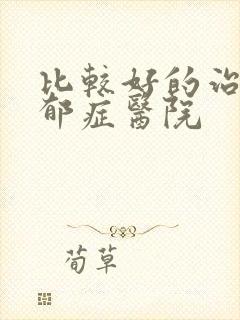 比較好的治
郁症醫院
荀草